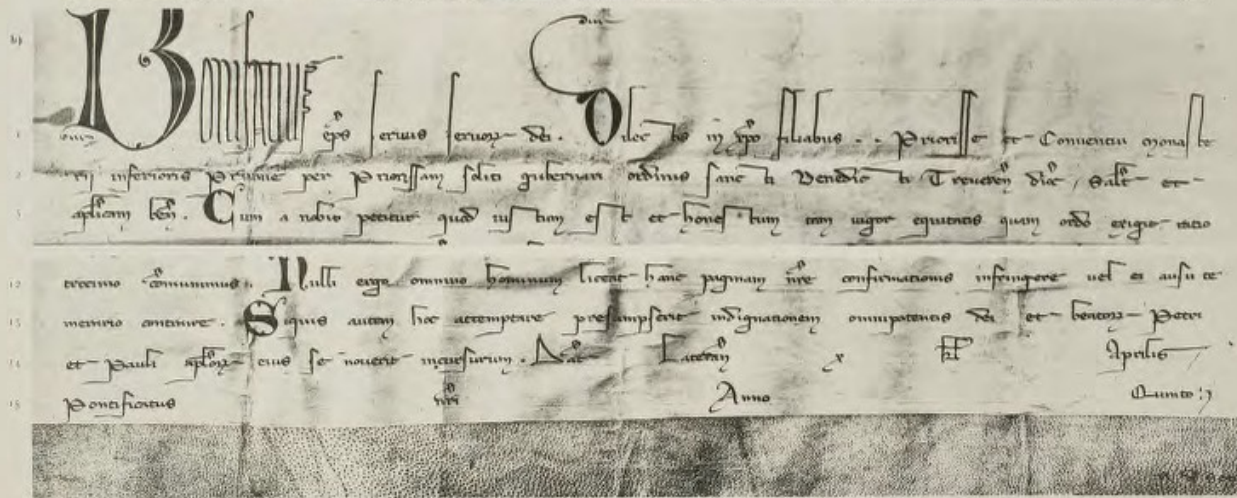 Bonifatius eps servus servorꝝ dei. Dilectis in xpo filiabus . . Priorisse et Conventui monaste
rii inferioris Prumie per Priorissam soliti gubernari ordinis sancti Benedicti Treveren dioc, Salt et
aplicam ben. Cum a nobis petitur quod iustum est et honestum tam vigor equitatis quam ordo exigit racio
12 trecimo comunimus. Nulli ergo omnino hominum liceat hanc paginam nre confirmationis infringere vel ei ausu te
13 merario contraire. Siquis autem hoc attemptare presumpserit indignationem omnipotentis dei et beatorꝝ Petri
14 et Pauli aplorꝝ eius se noverit incursurum. Dat Lateran x kl Aprilis
15 Pontificatus nri Anno Quinto